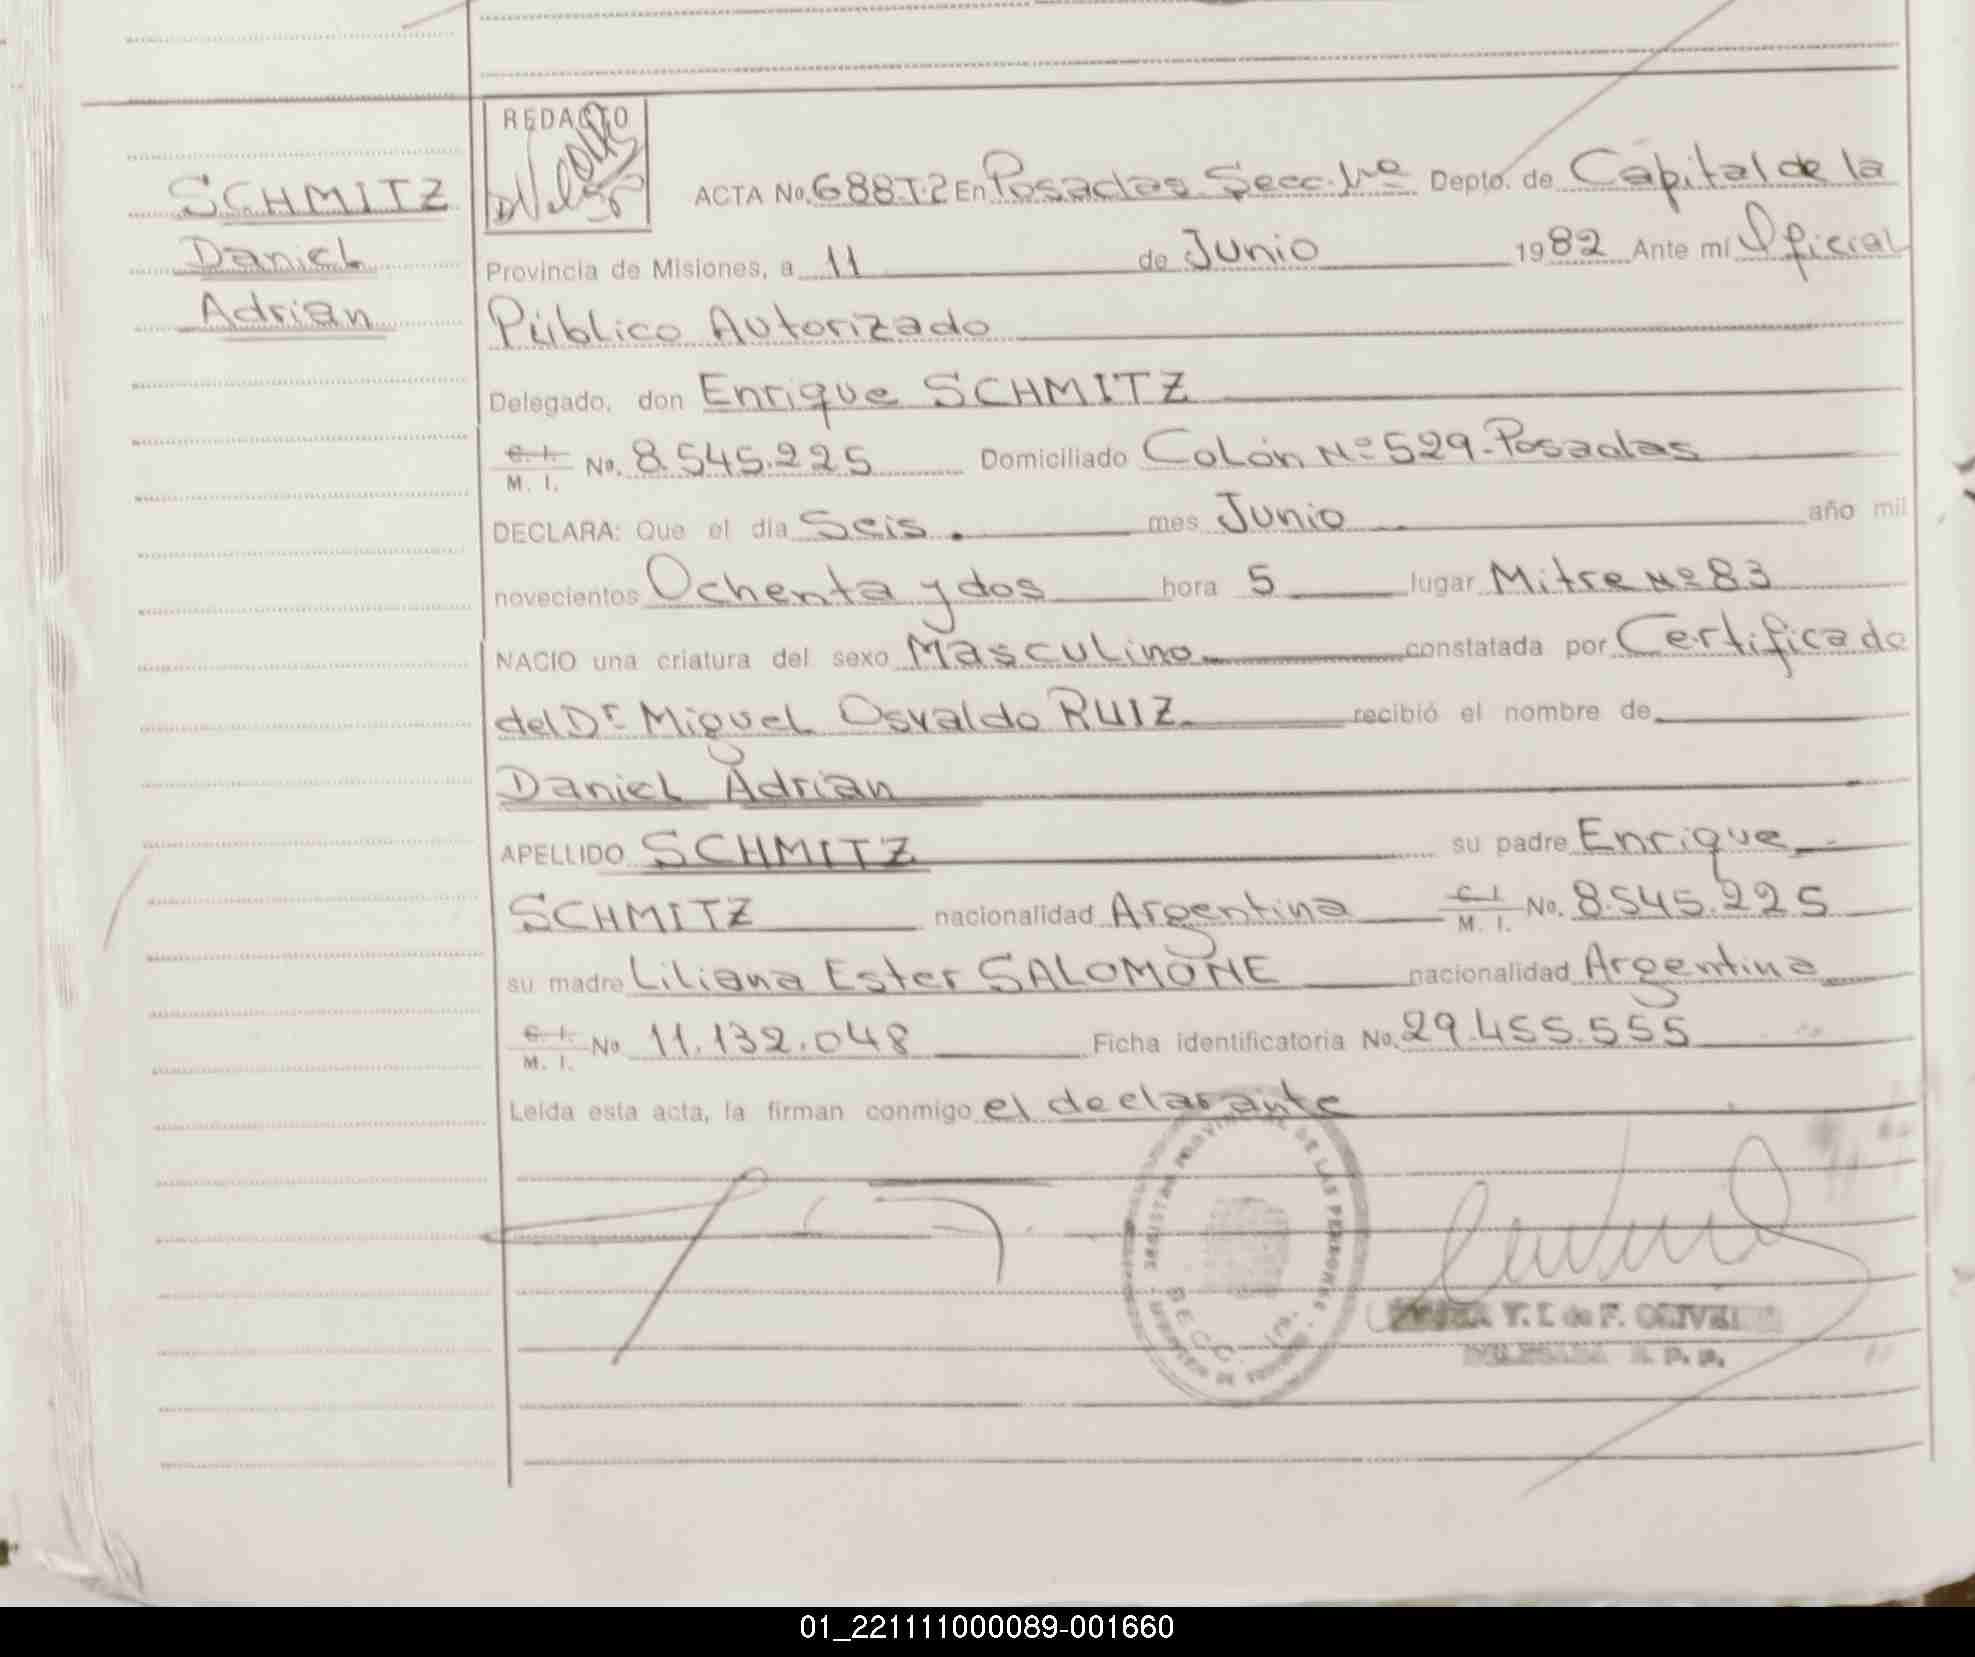 REDACTO
SCHMITZ
Daniel
Adrian
ACTA No. 688 T.2 En Posadas Secc. 1ra Depto. de Capital de la
Provincia de Misiones, a 11 de Junio 1982 Ante mí Oficial
Público Autorizado
Delegado, don Enrique SCHMITZ
C. I.
M. I. No. 8.545.225 Domiciliado Colón Nº 529 - Posadas
DECLARA: Que el día Seis. mes Junio año mil
novecientos Ochenta y dos hora 5 lugar Mitre Nº 83
NACIO una criatura del sexo Masculino constatada por Certificado
del Dr Miguel Osvaldo RUIZ recibió el nombre de
Daniel Adrian
APELLIDO SCHMITZ su padre Enrique
SCHMITZ nacionalidad Argentina C. I. M. I. No. 8.545.225
su madre Liliana Ester SALOMONE nacionalidad Argentina
C. I.
M. I. No 11.132.048 Ficha identificatoria No. 29.455.555
Leída esta acta, la firman conmigo el declarante
DE LAS PERSONAS
SECC. 1ra.
Y. I. de F.
01_221111000089-001660